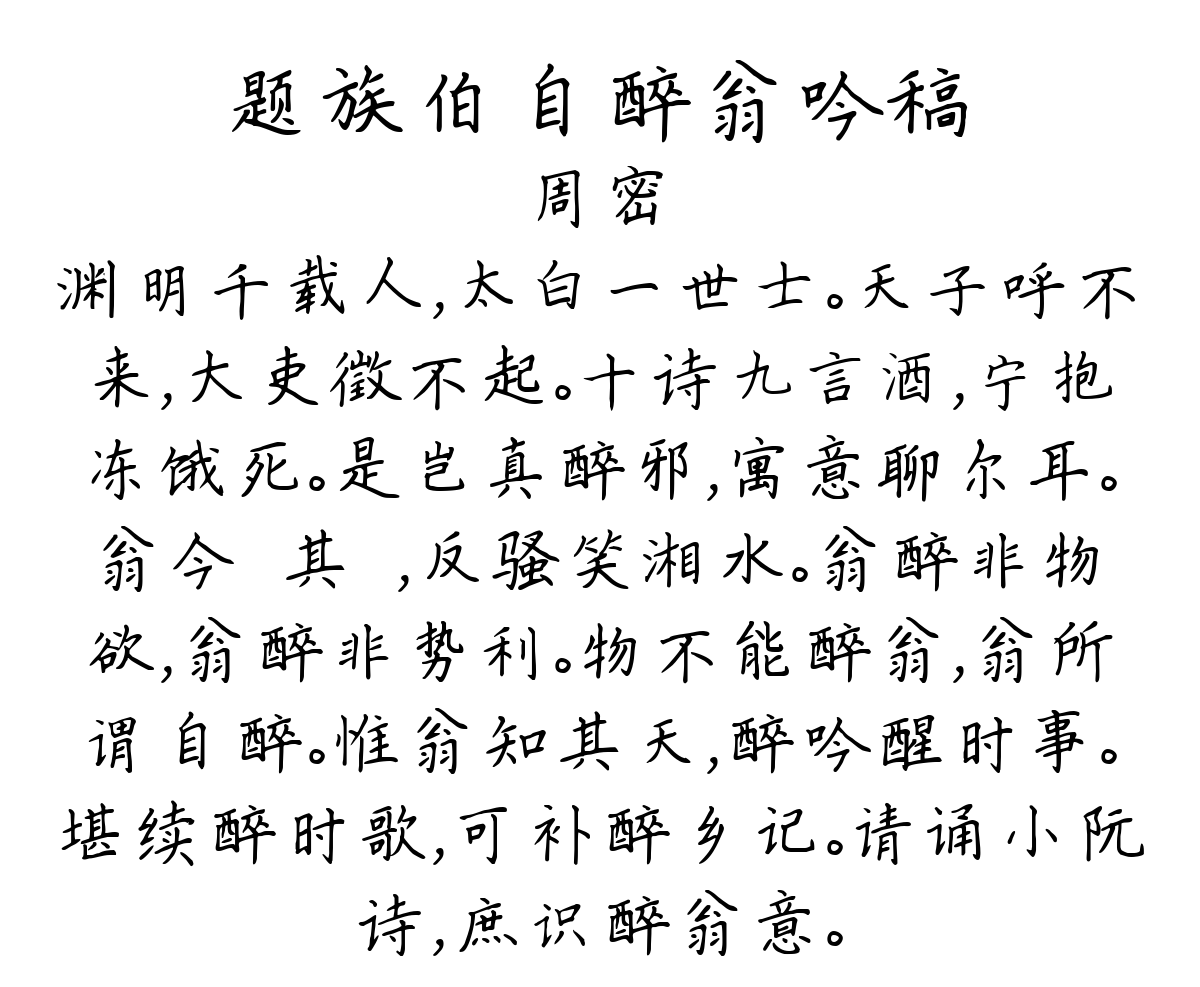 题族伯自醉翁吟稿
周密
渊明千载人,太白一世士。天子呼不
来,大吏徵不起。十诗九言酒,宁抱
冻饿死。是岂真醉邪,寓意聊尔耳。
翁今 其 ,反骚笑湘水。翁醉非物
欲,翁醉非势利。物不能醉翁,翁所
谓自醉。惟翁知其天,醉吟醒时事。
堪续醉时歌,可补醉乡记。请诵小阮
诗,庶识醉翁意。